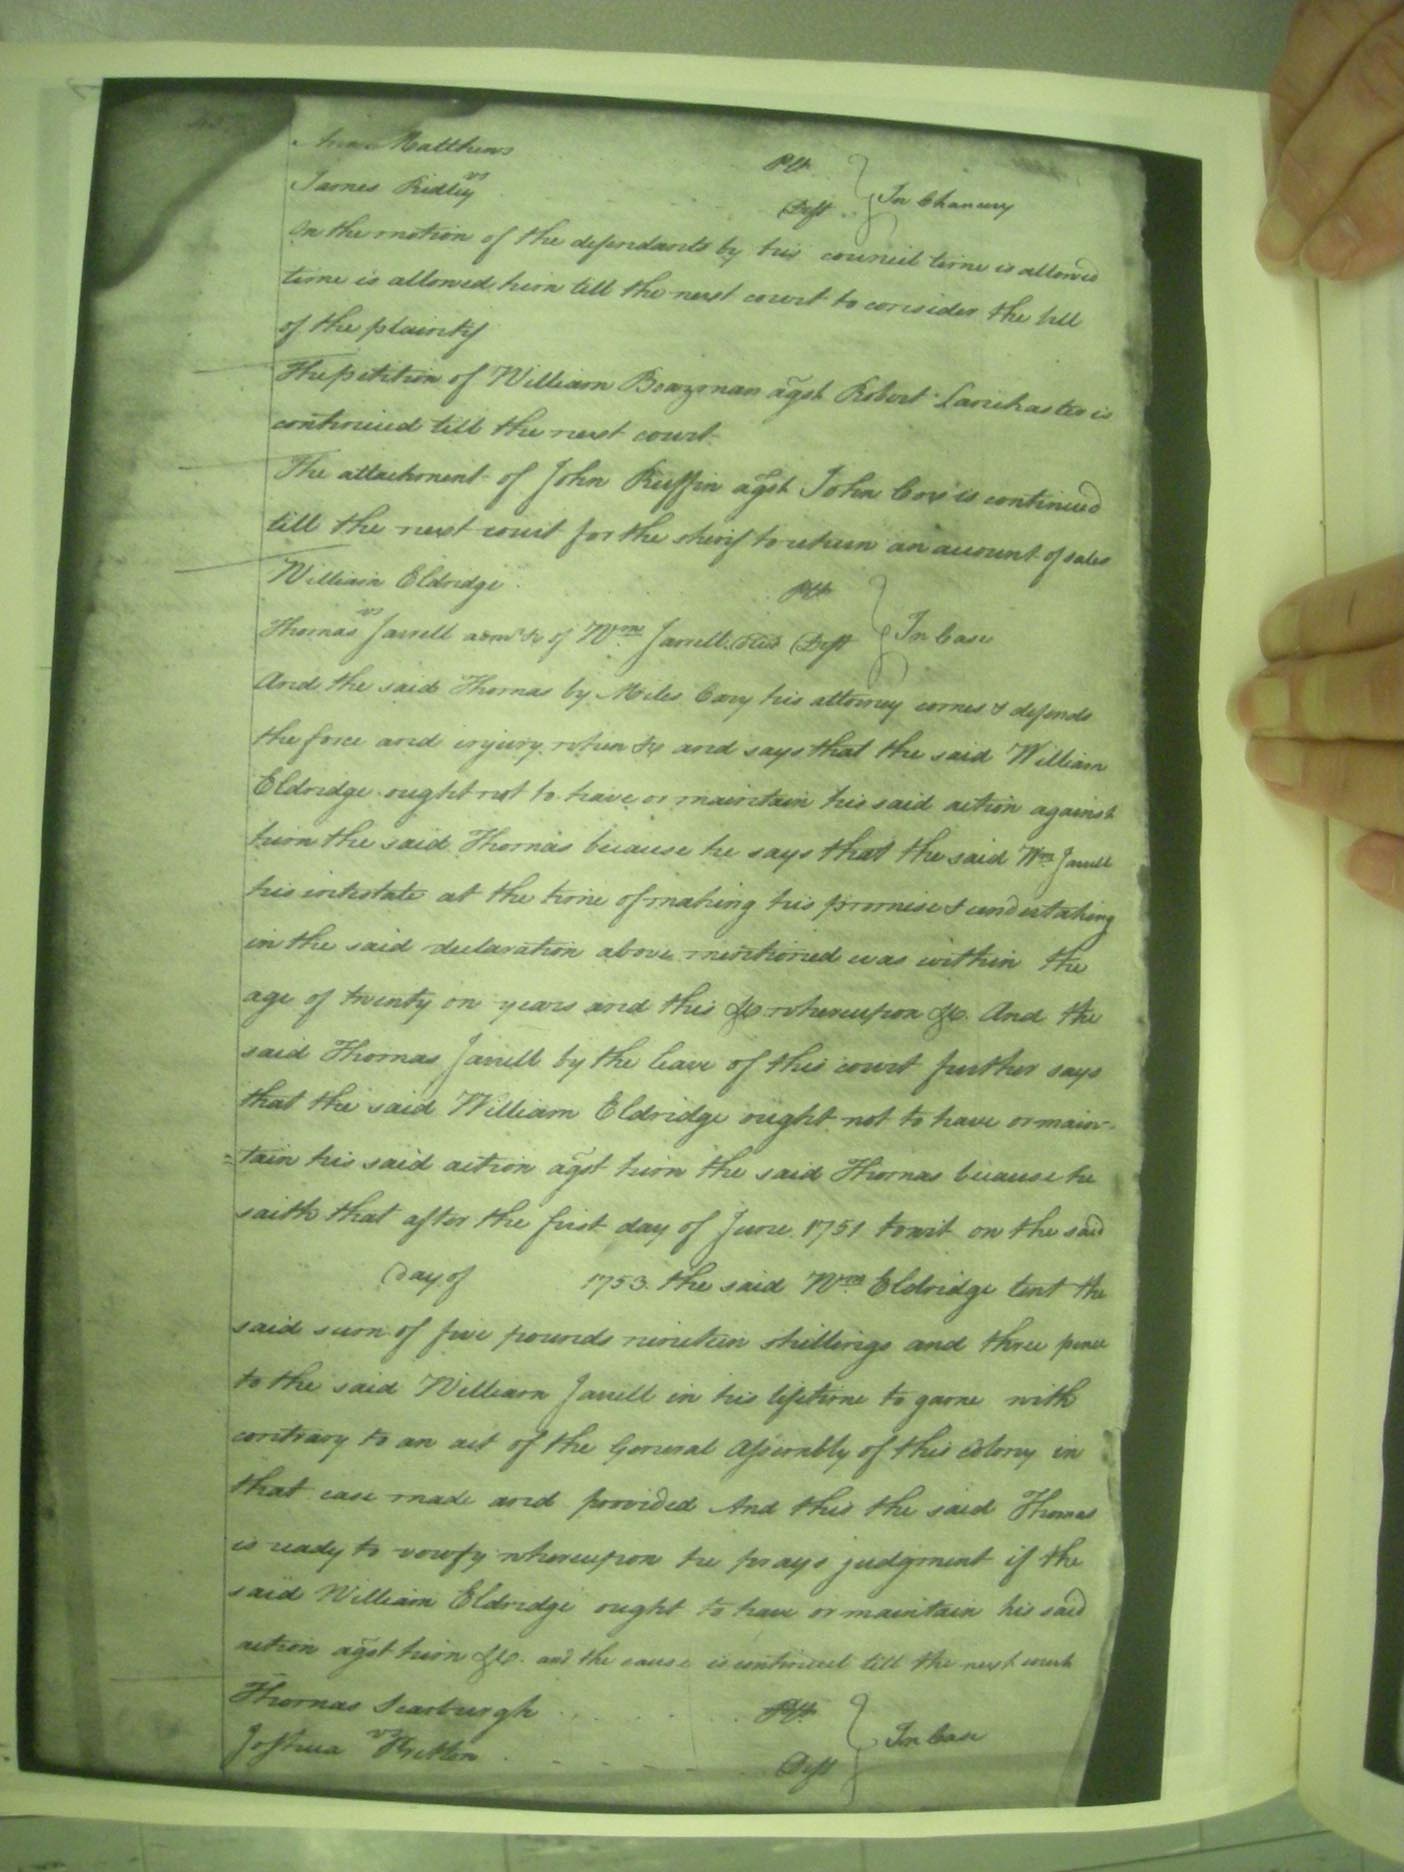 Ann Matthews Plt
vs
James Ridley Deft } In Chancery
On the motion of the defendants by his council time is allowed
time is allowed him till the next court to consider the bill
of the plaintif
The petition of William Boazman agst Robert Lanchaster is
continued till the next court
The attachment of John Ruffin agst John Cox is continued
till the next court for the sherif to return an account of sales
William Eldridge Plt
vs
Thomas Jarrell admr &c of Wm Jarrell decd Deft } In Case
And the said Thomas by Miles Cary his attorney comes & defends
the force and injury when &c and says that the said William
Eldridge ought not to have or maintain his said action against
him the said Thomas because he says that the said Wm Jarrell
his intestate at the time of making his promise & undertaking
in the said declaration above mentioned was within the
age of twenty on years and this &c whereupon &c. And the
said Thomas Jarrell by the leave of this court further says
that the said William Eldridge ought not to have or main-
=tain his said action agst him the said Thomas because he
saith that after the first day of June 1751 towit on the said
day of 1753 the said Wm Eldridge lent the
said sum of five pounds nineteen shillings and three pence
to the said William Jarrell in his lifetime to game with
contrary to an act of the General Assembly of this colony in
that case made and provided And this the said Thomas
is ready to verify whereupon he prays judgment if the
said William Eldridge ought to have or maintain his said
action agst him &c. and the cause is continued till the next court
Thomas Scarburgh Plt
vs
Joshua Britton Deft } In Case